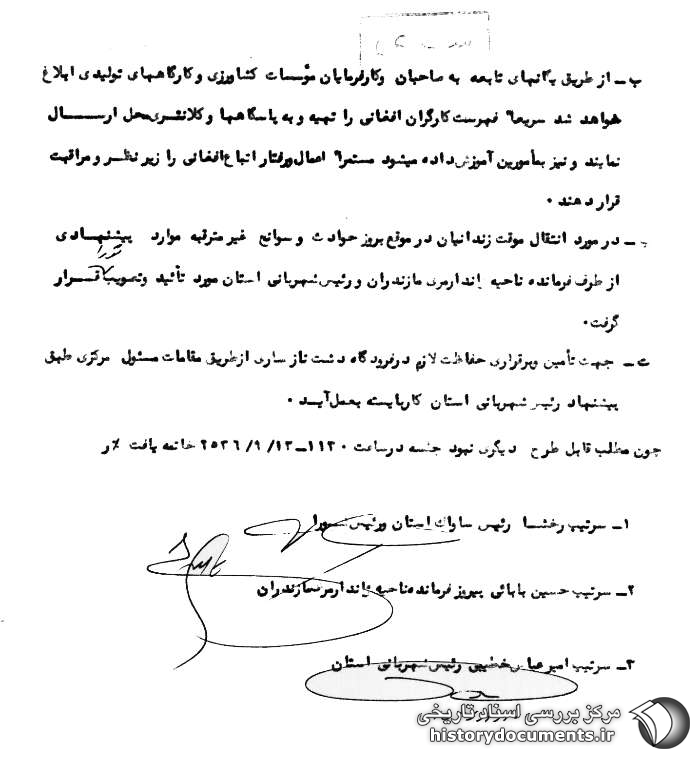 ب ـ از طریق یگانهای تابعه به صاحبان وکارفرمایان مؤسسات کشاورزی و کارگاههای تولیدی ابلاغ
خواهد شد سریعا" فهرست کارگران افغانی را تهیه و به پاسگاهها و کلانتریمحل ارســال
نمایند و نیز بمأمورین آموزش داده میشود مستمرا" اعمال ورفتار اتباع افغانی را زیر نظر و مراقبت
قرار دهند ۰
در مورد انتقال موقت زندانیان در موقع بروز حوادث و سوانح غیر مترقبه موارد پیشنهادی
از طرف فرمانده ناحیه ژاندارمری مازندران و رئیس شهربانی استان مورد تأئید وتصویب قرار
گرفت۰
ت ـ جهت تأمین وبرقراری حفاظت لازم در فرودگاه دشت ناز ساری از طریق مقامات مسئول مرکزی طبق
پیشنهاد رئیس شهربانی استان کاربایسته بعمل آید ۰
چون مطلب قابل طرح دیگری نبود جلسه در ساعت ۱۱۳۰ـ۲۵۳۶/۹/۱۳ خاتمه یافت ٪ر
۱ـ سرتیپ رخشا رئیس ساواک استان ورئیس شورا
۲ـ سرتیپ حسین بابائی پیروز فرمانده ناحیه ژاندارمری مازندران
۳ـ سرتیپ امیر عباس خطیبی رئیس شهربانی استان
مرکز بررسی اسناد تاریخی
historydocuments.ir